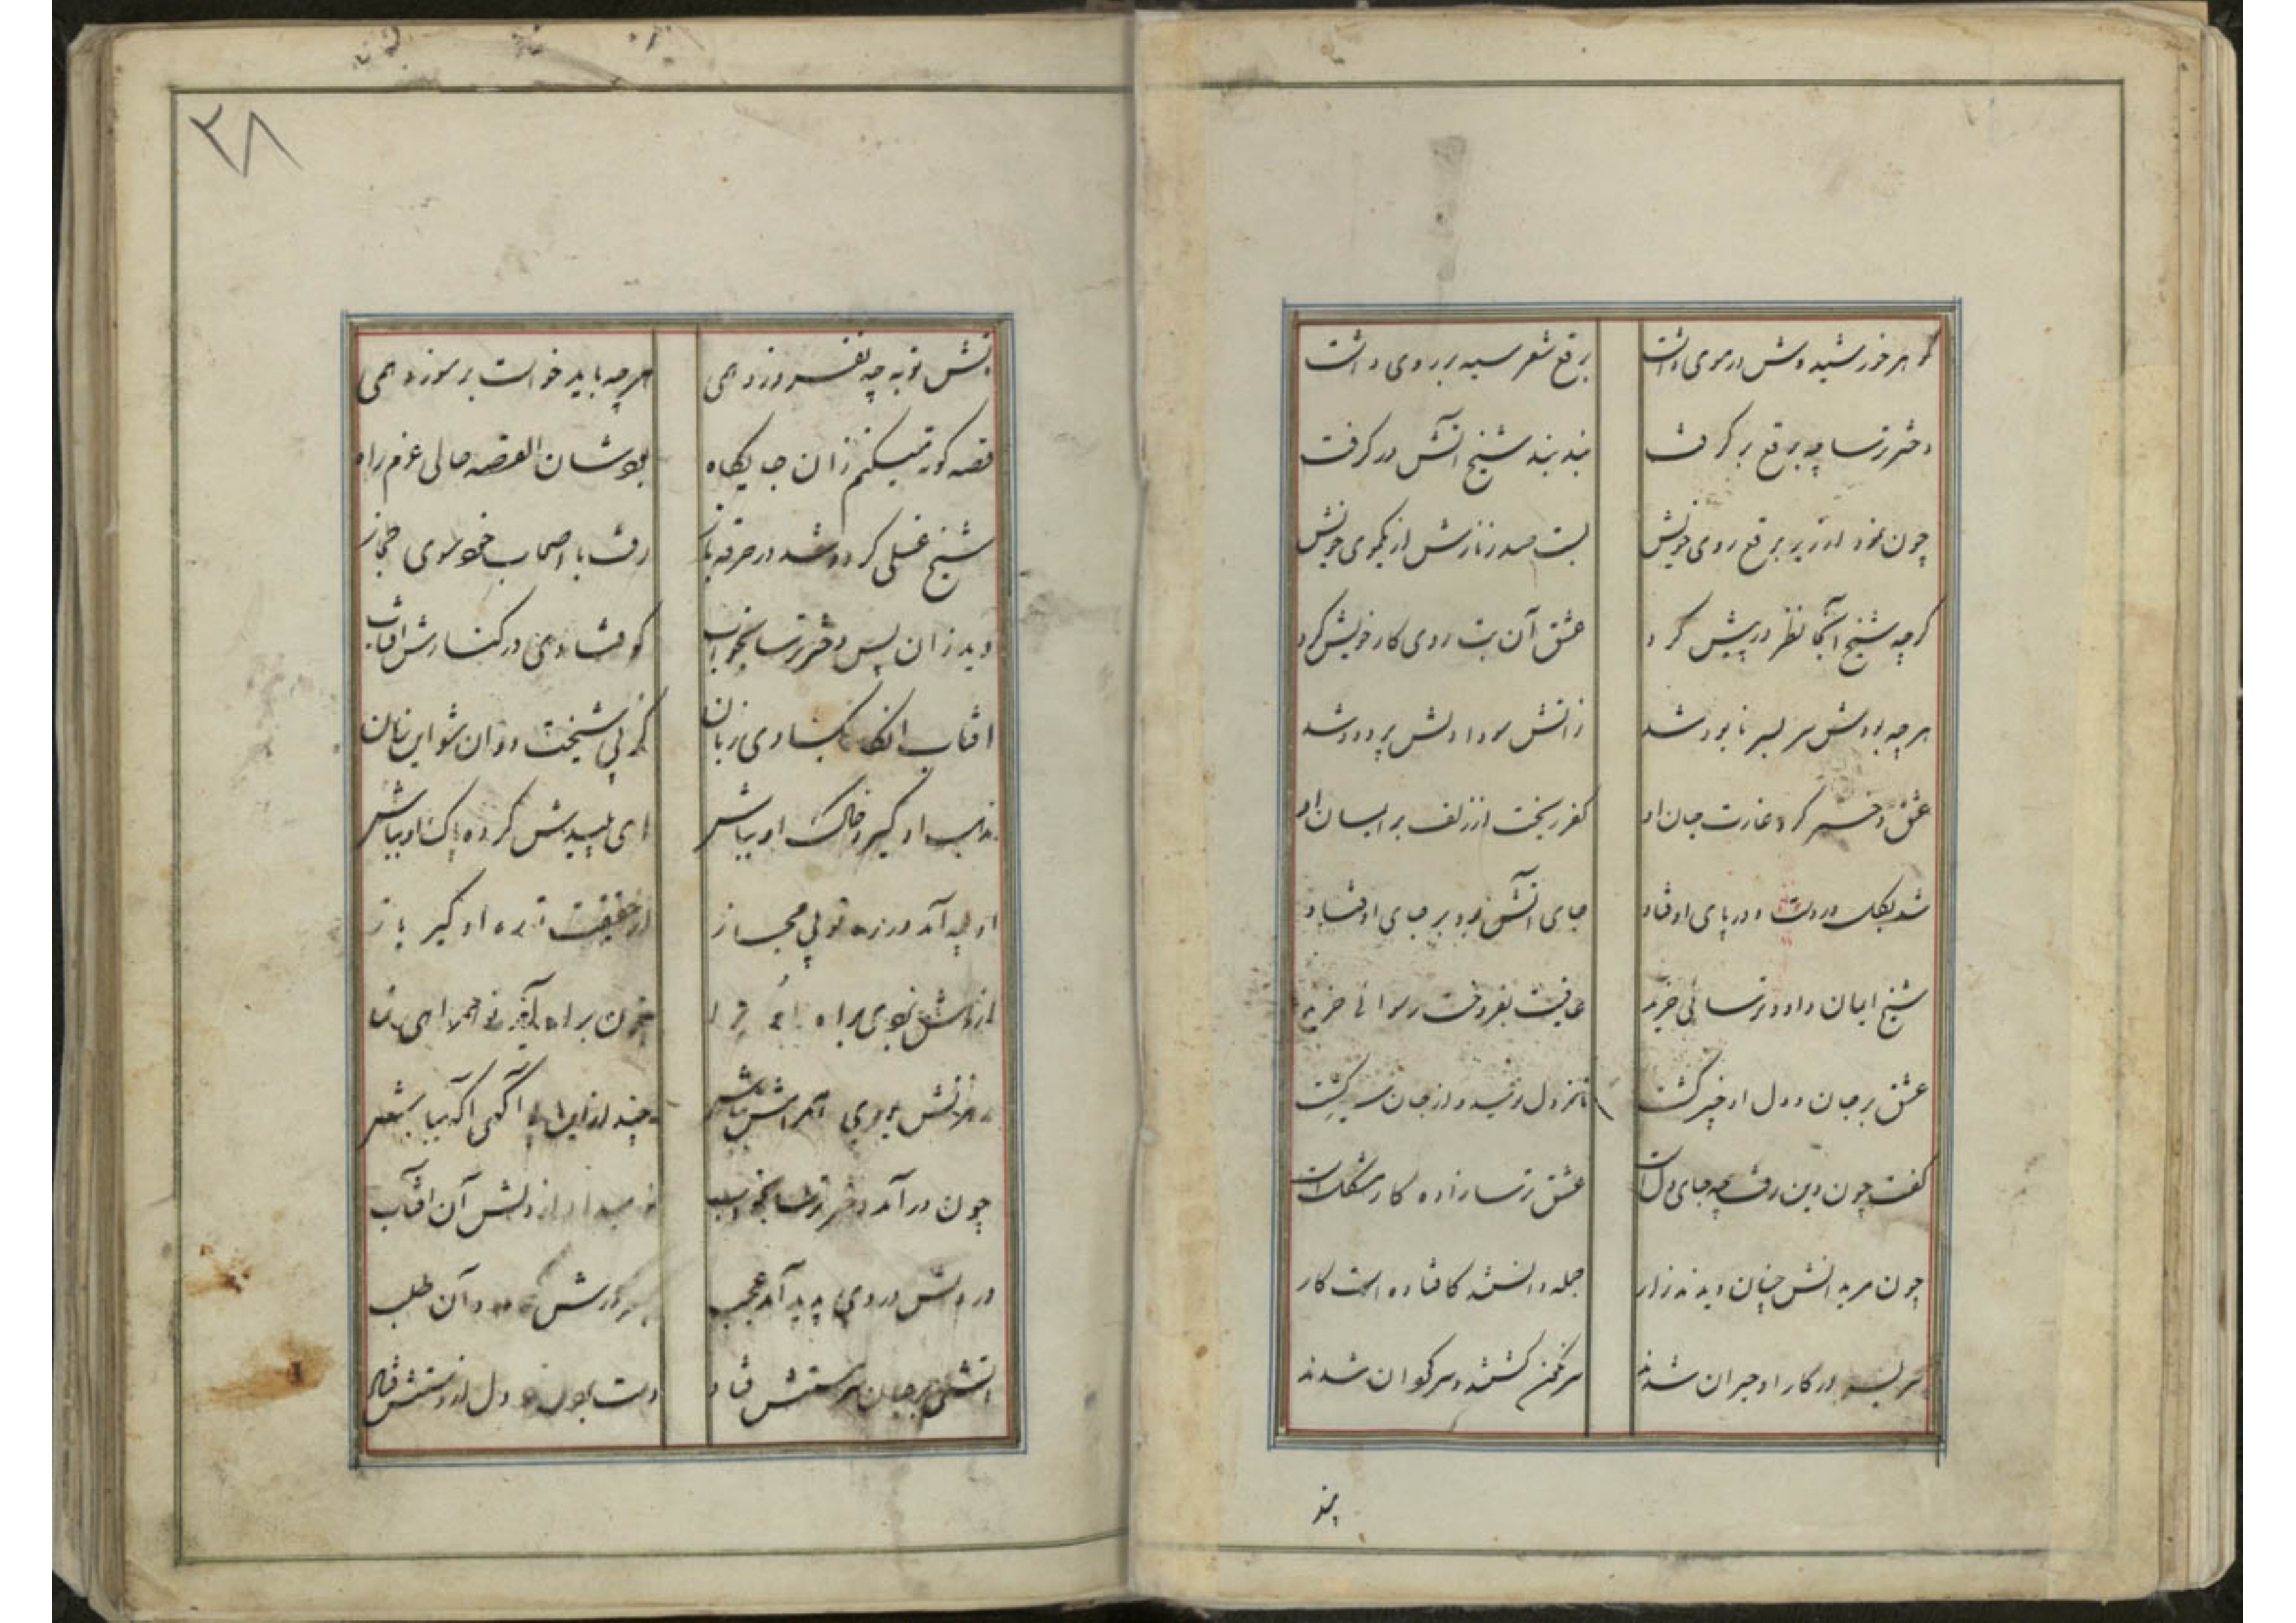 گوهر خورشیدوش در موی داشت
برقع شعر سیه بر روی داشت
دختر ترسا چو برقع بر گرفت
بند بند شیخ آتش در گرفت
چون نمود از زیر برقع روی خویش
بست صد زنارش از یکموی خویش
گرچه شیخ آنجا نظر در پیش کرد
عشق آن بت روی کار خویش کرد
هرچه بودش سر بسر نابود شد
زاتش سودا دلش پر دود شد
عشق دختر کرد غارت جان او
کفر ریخت از زلف بر ایمان او
شد بکل از دست و در پای اوفتاد
جای آتش بود بر جای اوفتاد
شیخ ایمان داد و ترسائی خرید
عافیت بفروخت رسوائی خرید
عشق بر جان و دل او چیر گشت
تا ز دل نومید و از جان سیر گشت
گفت چون دین رفت چه جای دل است
عشق ترسازاده کار مشکل است
چون مریدانش چنان دیدند زار
جمله دانستند کافتاده است کار
سر بسر در کار او حیران شدند
سرنگون گشتند و سرگردان شدند
پند
۳۸
آتش توبه چو بفروزد همی
هرچه باید خواست بر سوزد همی
قصه کوته میکنم زان جایگاه
بودشان القصه حالی عزم راه
شیخ غسلی کرد و شد در خرقه باز
رفت با اصحاب خود سوی حجاز
دید زان پس دختر ترسا بخواب
کوفتادی در کنارش آفتاب
آفتاب آنگاه بگشادی زبان
کز پی شیخت روان شو این زمان
مذهب او گیر و خاک او بباش
ای پلیدش کرده پاک او بباش
او چو آمد در ره تو بی مجاز
از حقیقت تو ره او گیر باز
از رهش بردی براه او درا
چون براه آمد تو همراهی نما
رهزنش بودی همراهش بباش
چند ازین بی آگهی آگه بباش
چون درآمد دختر ترسا بخواب
نور میداد از دلش آن آفتاب
در دلش دردی پدید آمد عجب
آتشی در جان سرمستش فتاد
دست بر دل زد دل از دستش فتاد